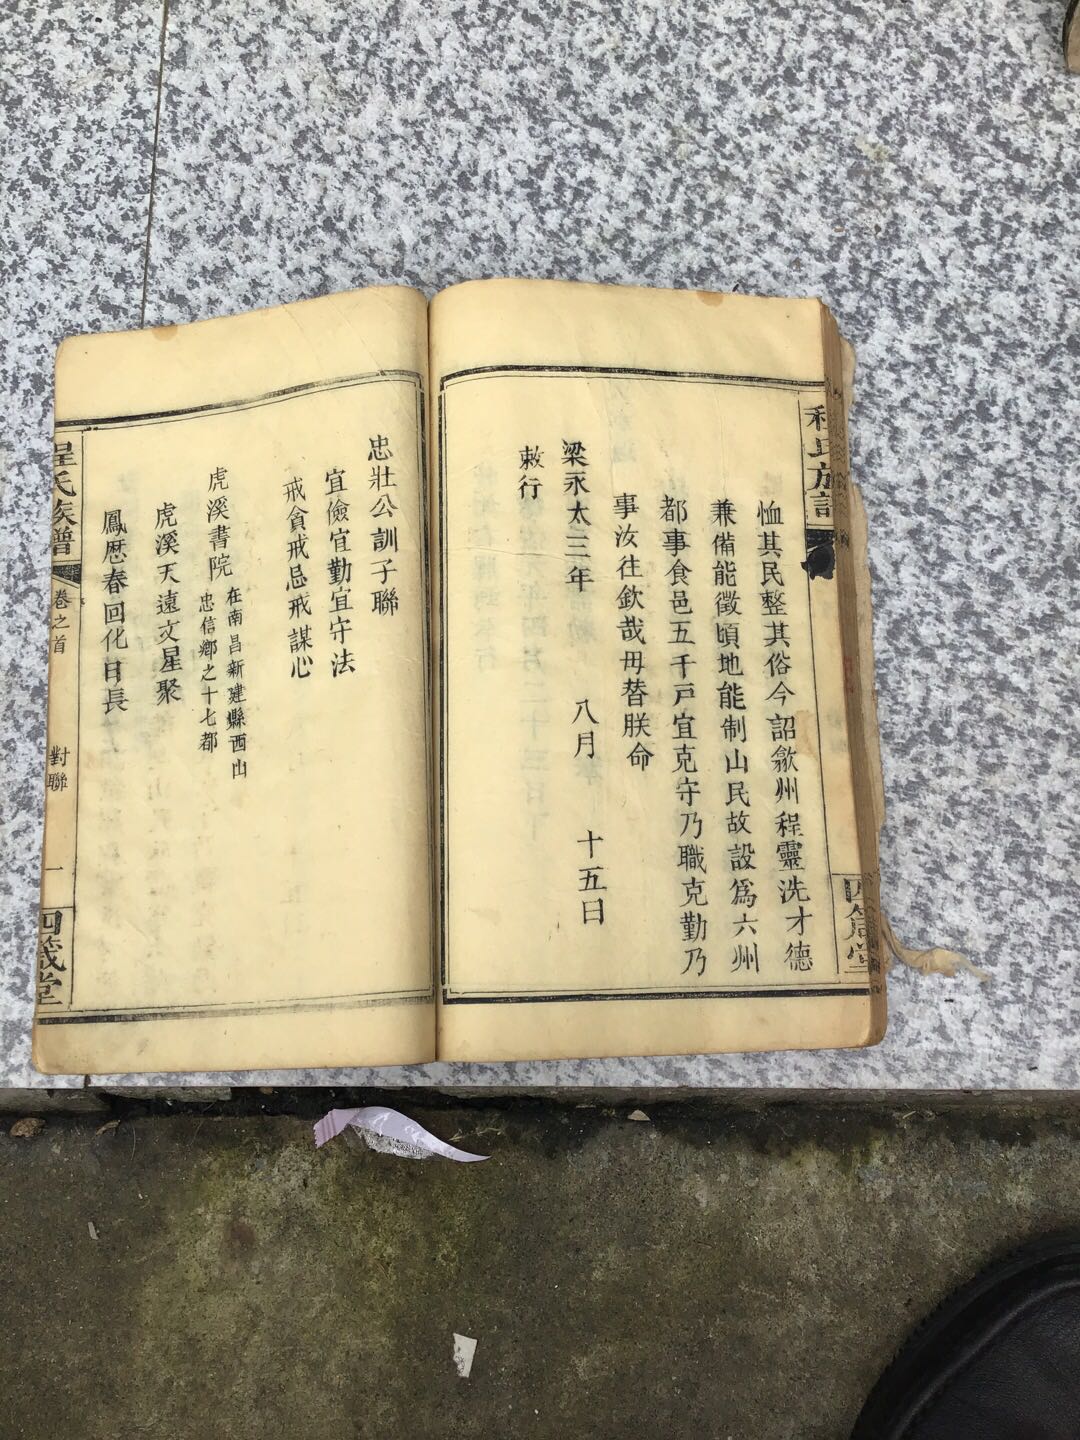 程氏族譜
恤其民整其俗今詔歙州程靈洗才德
兼備能徵頃地能制山民故設爲六州
都事食邑五千戸宜克守乃職克勤乃
事汝往欽哉毋替朕命
梁永太三年 八月 十五日
敕行
四箴堂
忠壯公訓子聯
宜儉宜勤宜守法
戒貪戒忌戒謀心
虎溪書院
在南昌新建縣西山
忠信鄉之十七都
虎溪天遠文星聚
鳳歷春回化日長
程氏族譜
卷之首
對聯
一
四箴堂